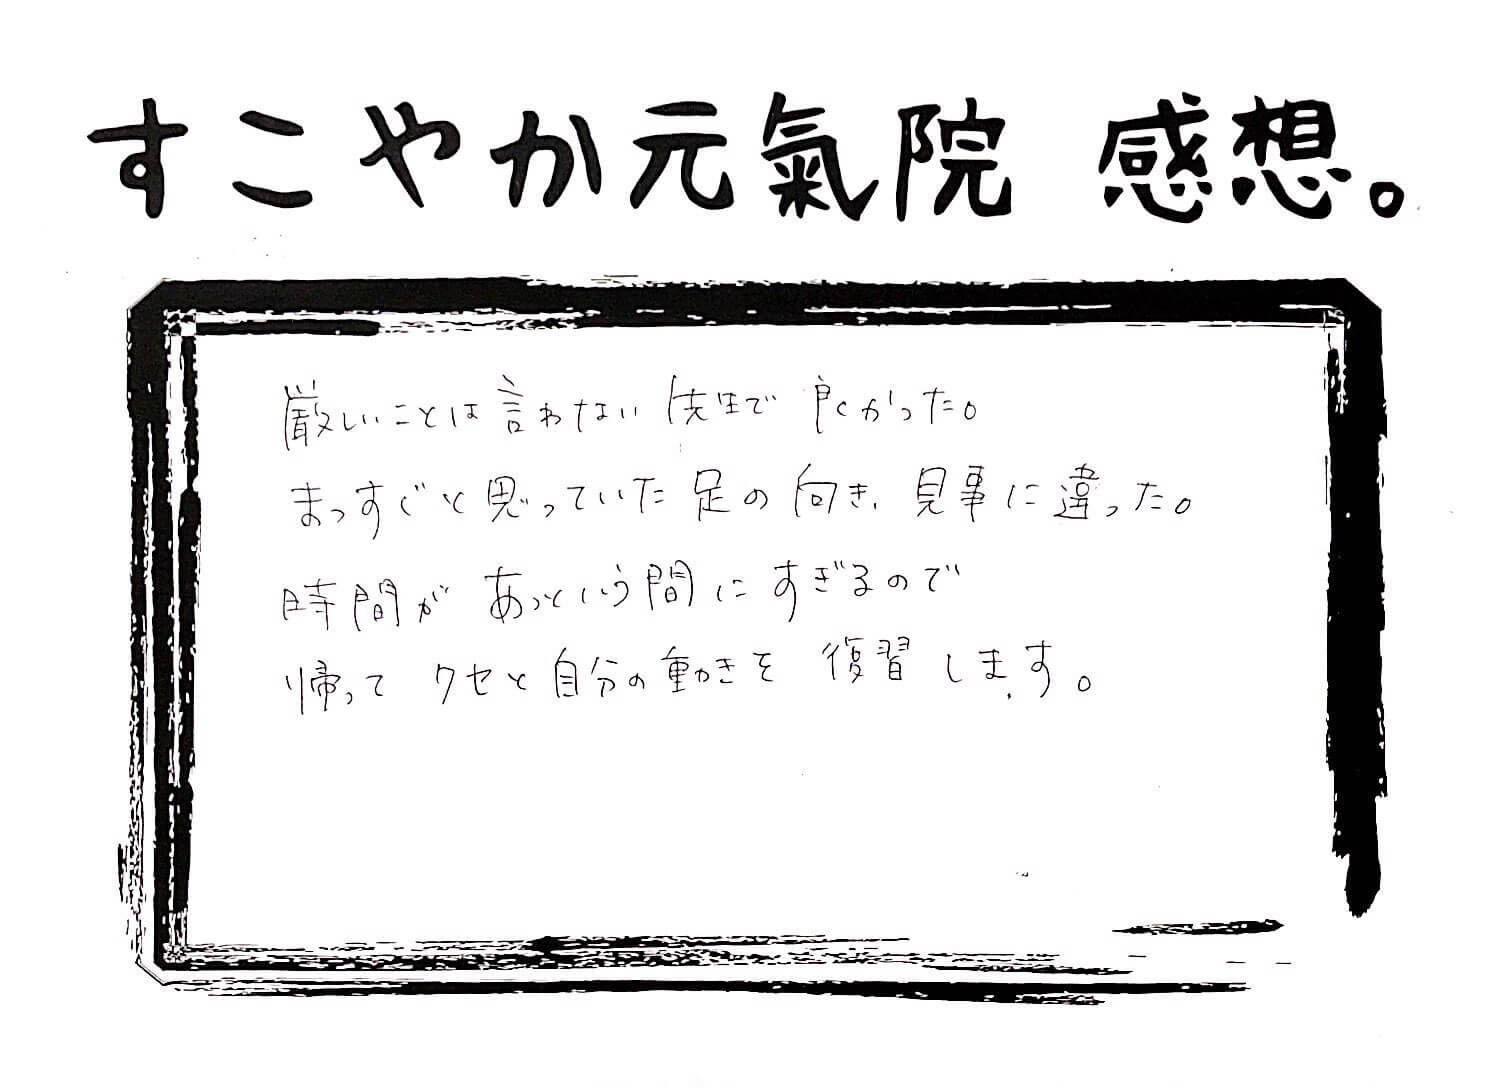 すこやか元氣院 感想。
厳しいことは言わない先生で良かった。
まっすぐと思っていた足の向き、見事に違った。
時間があっという間にすぎるので
帰ってクセと自分の動きを復習します。